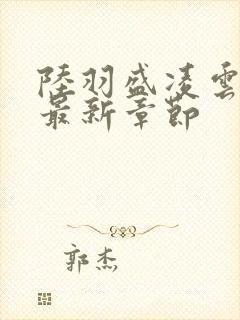 陸羽盛凌雲
最新章節
郭杰